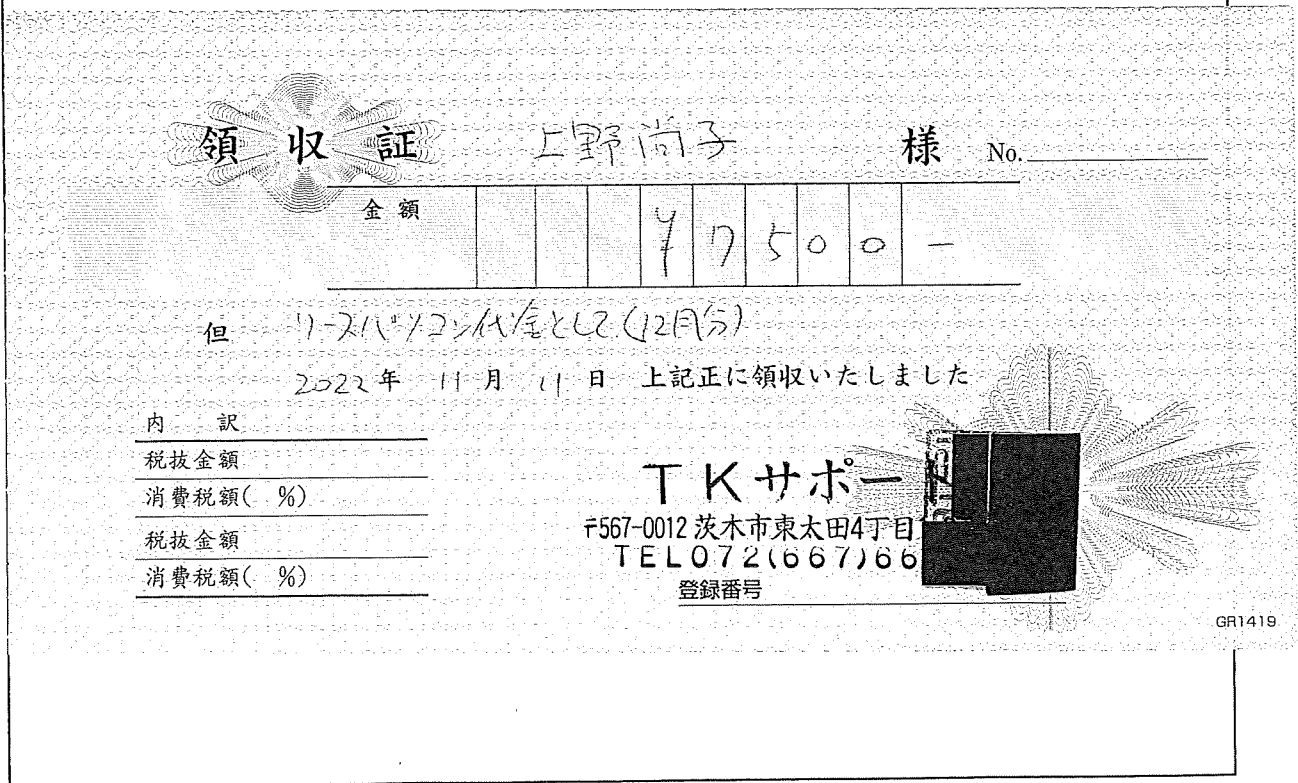 領収証 上野尚子 様 No.
金額 ¥7500-
但 リースパソコン代金として(12月分)
2022年 11月 11日 上記正に領収いたしました
内訳
税抜金額
消費税額( %)
税抜金額
消費税額( %)
TKサポー
〒567-0012 茨木市東太田4丁目
TEL072(667)66
登録番号
GR1419